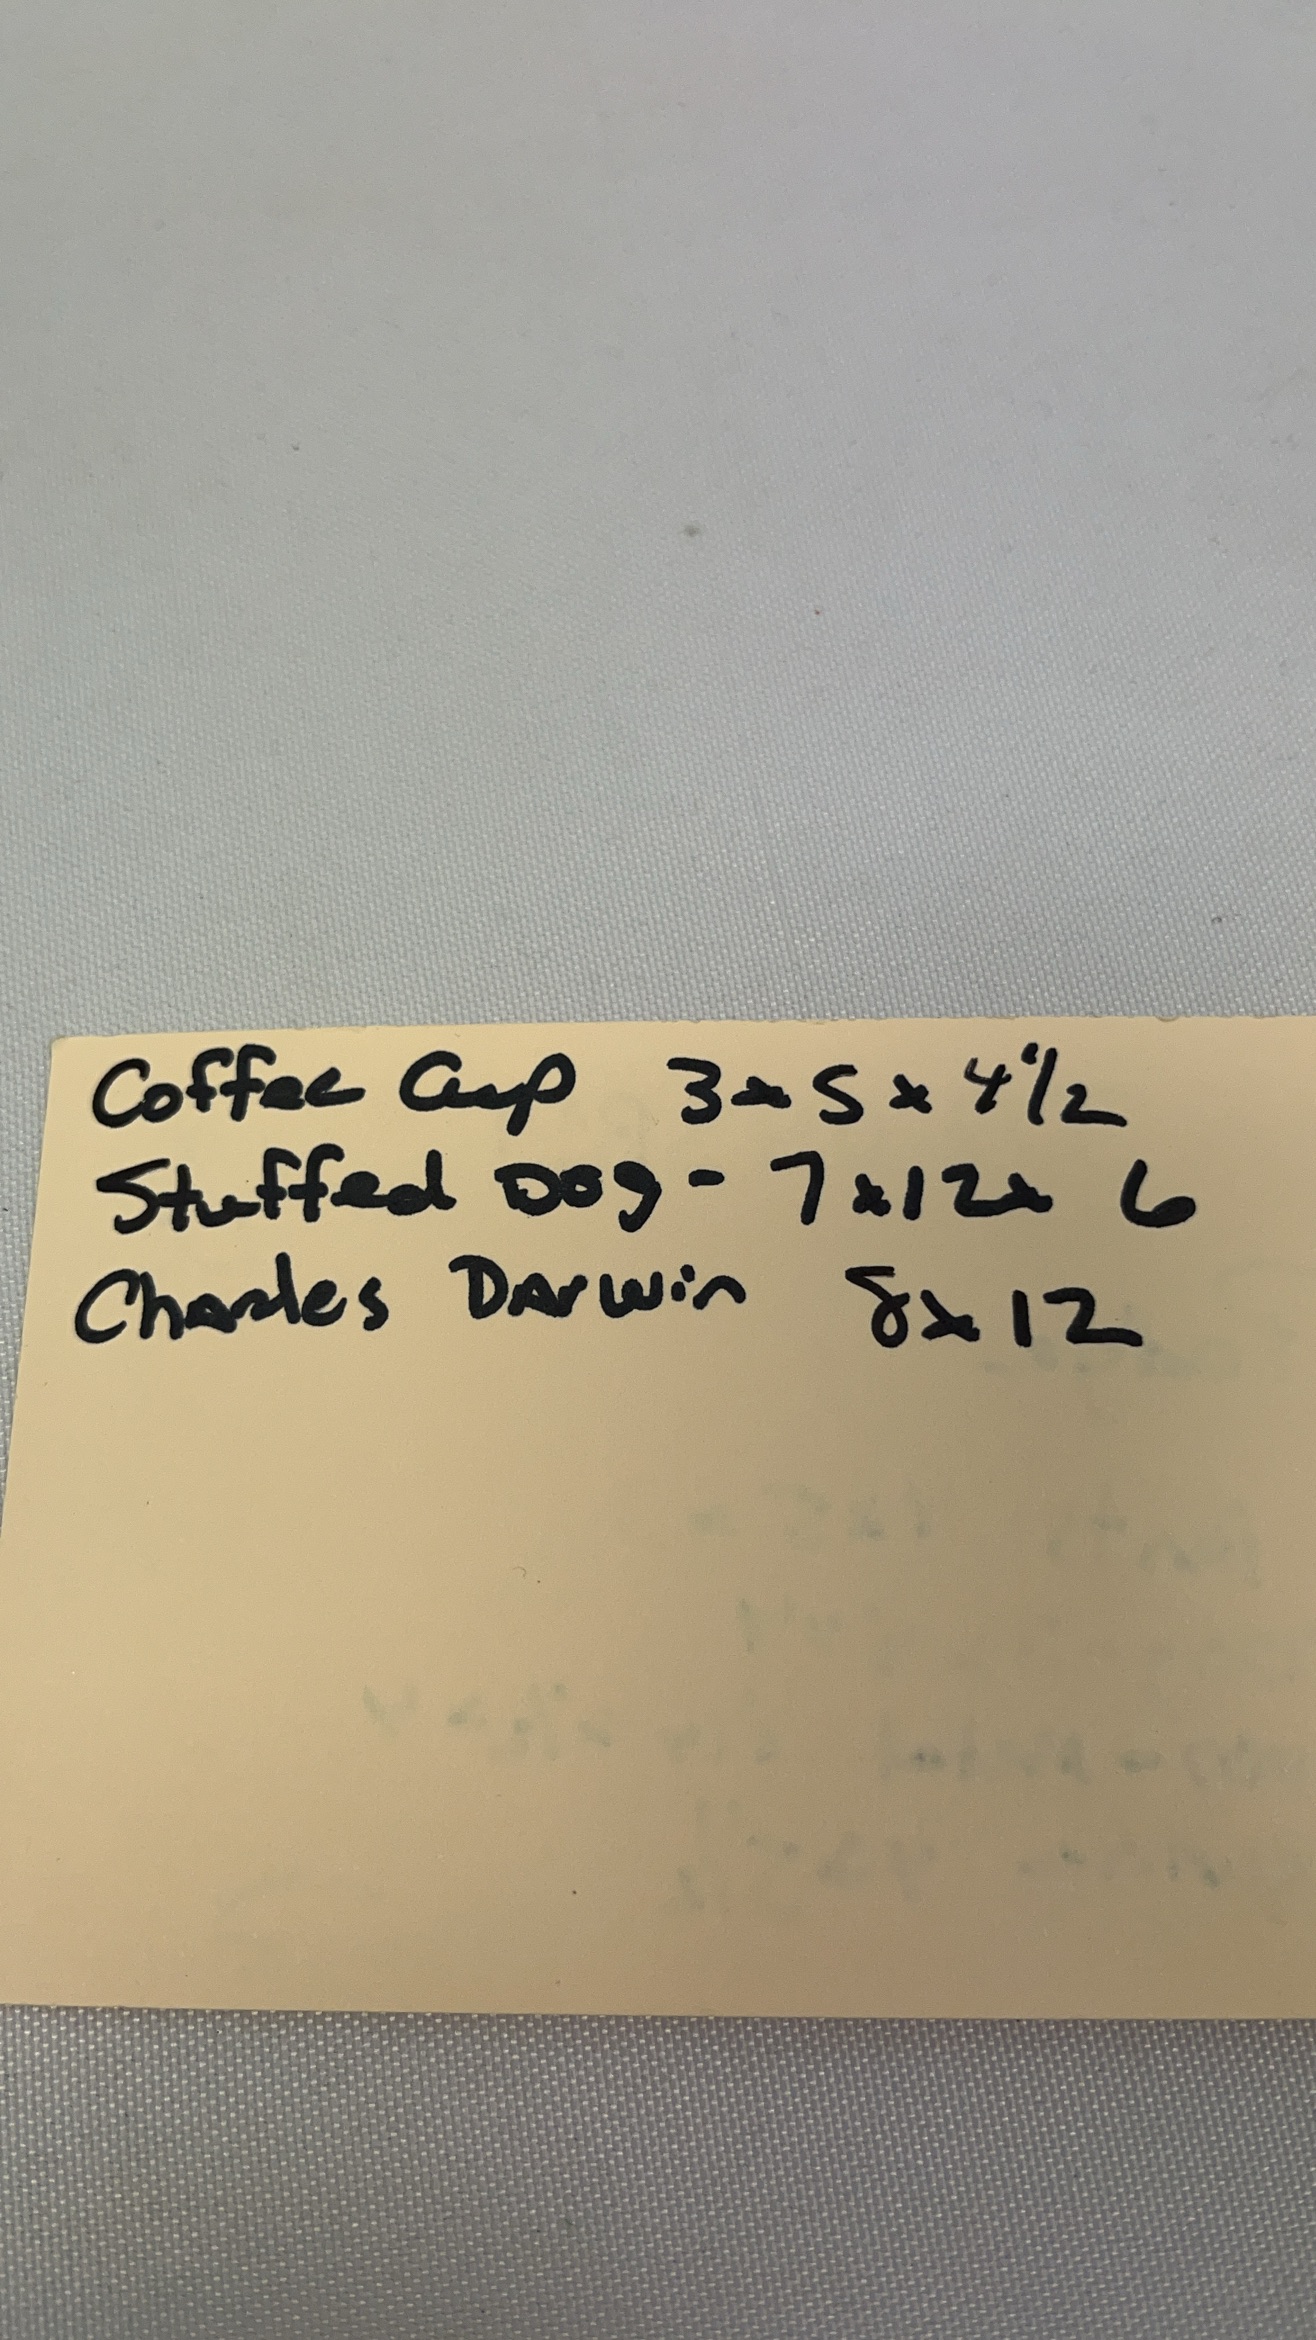 Coffee Cup 3x5x4½
Stuffed Dog - 7x12x 6
Charles Darwin 8x12